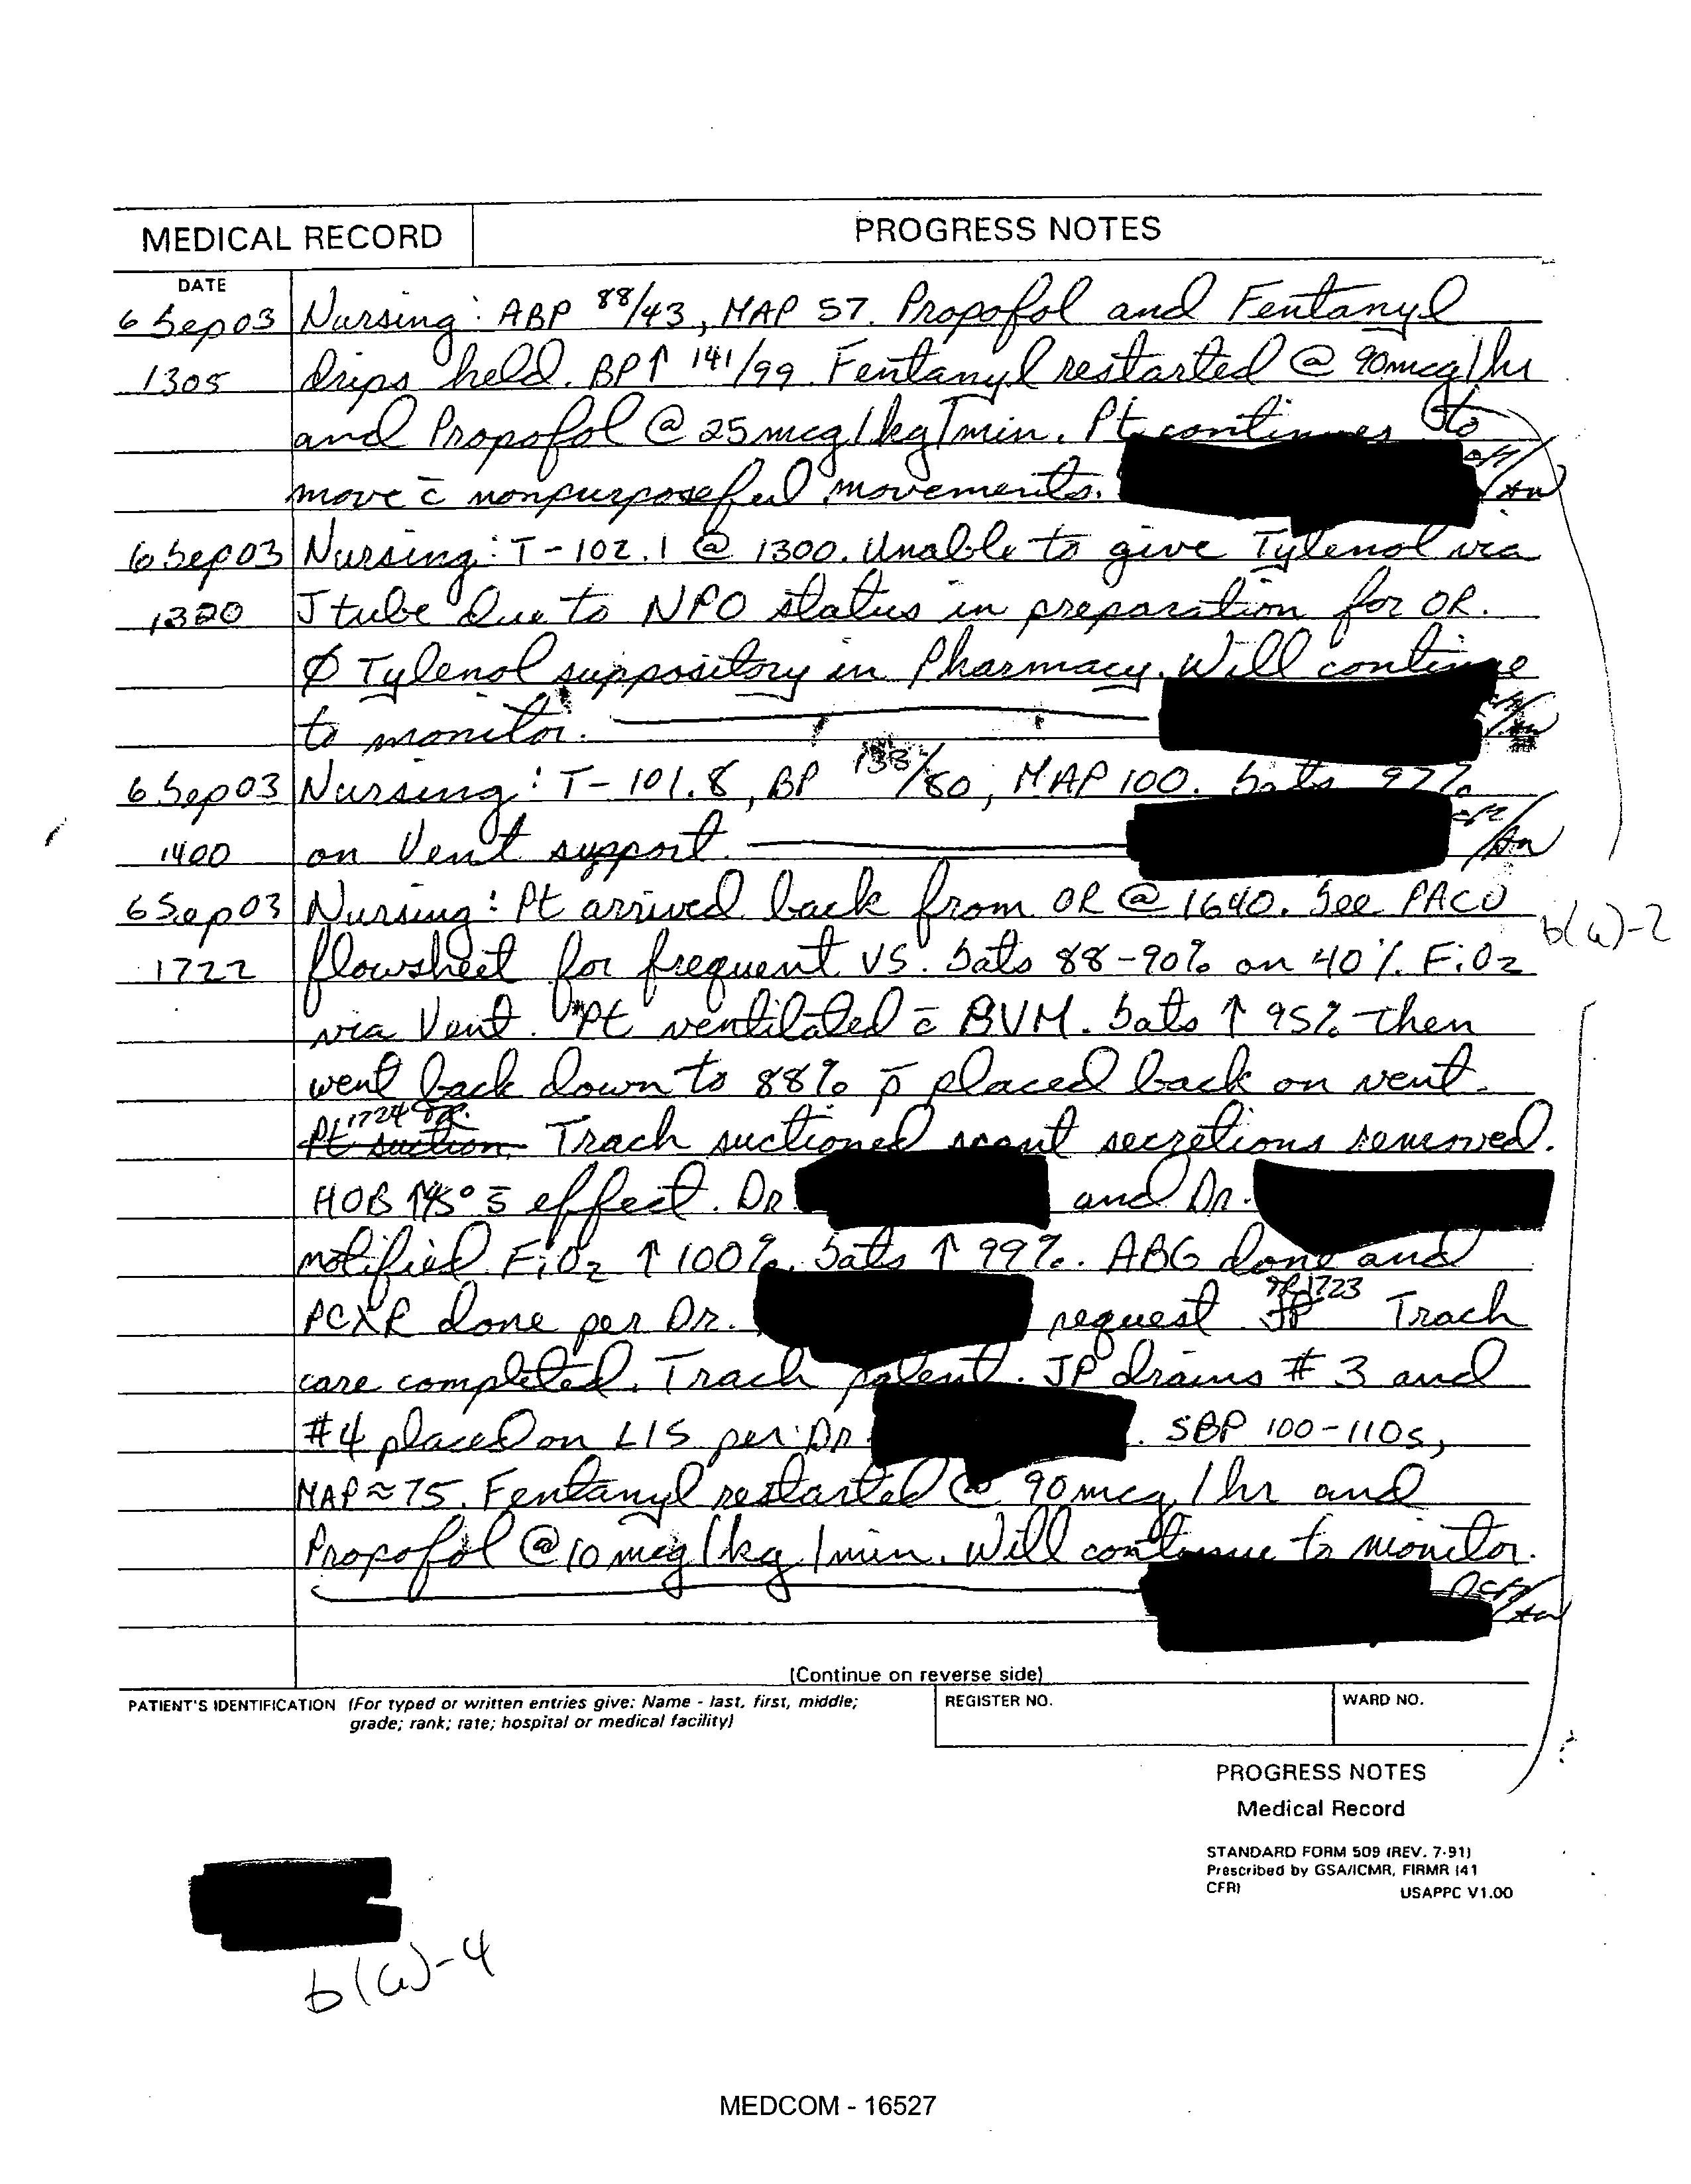 MEDICAL RECORD
PROGRESS NOTES
DATE
6 Sep 03 Nursing: ABP 88/43, MAP 57. Propofol and Fentanyl
1305 drips held. BP↑ 141/99. Fentanyl restarted @ 90mcg/hr
and Propofol @ 25mcg/kg/min. Pt continues to
move c̄ nonpurposeful movements.
6 Sep 03 Nursing: T-102.1 @ 1300. Unable to give Tylenol via
1320 J tube due to NPO status in preparation for OR.
Ø Tylenol suppository in Pharmacy. Will continue
to monitor.
6 Sep 03 Nursing: T-101.8, BP 138/80, MAP 100. Sats 97%
1400 on Vent support.
6 Sep 03 Nursing: Pt arrived back from OR @ 1640. See PACU
b(6)-2
1722 flowsheet for frequent VS. Sats 88-90% on 40% FiO2
via Vent. Pt ventilated c̄ BVM. Sats ↑ 95% then
went back down to 88% p̄ placed back on vent.
1724
Pt suction Trach suctioned scant secretions removed.
HOB ↑45° s̄ effect. Dr and Dr.
notified. FiO2 ↑ 100%. Sats ↑ 99%. ABG done and
1723
PCXR done per Dr. request JP Trach
care completed. Trach patent. JP drains #3 and
#4 placed on LIS per Dr. SBP 100-110s,
MAP≈75. Fentanyl restarted @ 90mcg/hr and
Propofol @ 10 mcg/kg/min. Will continue to monitor.
(Continue on reverse side)
PATIENT'S IDENTIFICATION (For typed or written entries give: Name - last, first, middle;
grade; rank; rate; hospital or medical facility)
REGISTER NO.
WARD NO.
PROGRESS NOTES
Medical Record
STANDARD FORM 509 (REV. 7-91)
Prescribed by GSA/ICMR, FIRMR (41
CFR)
USAPPC V1.00
b(6)-4
MEDCOM - 16527